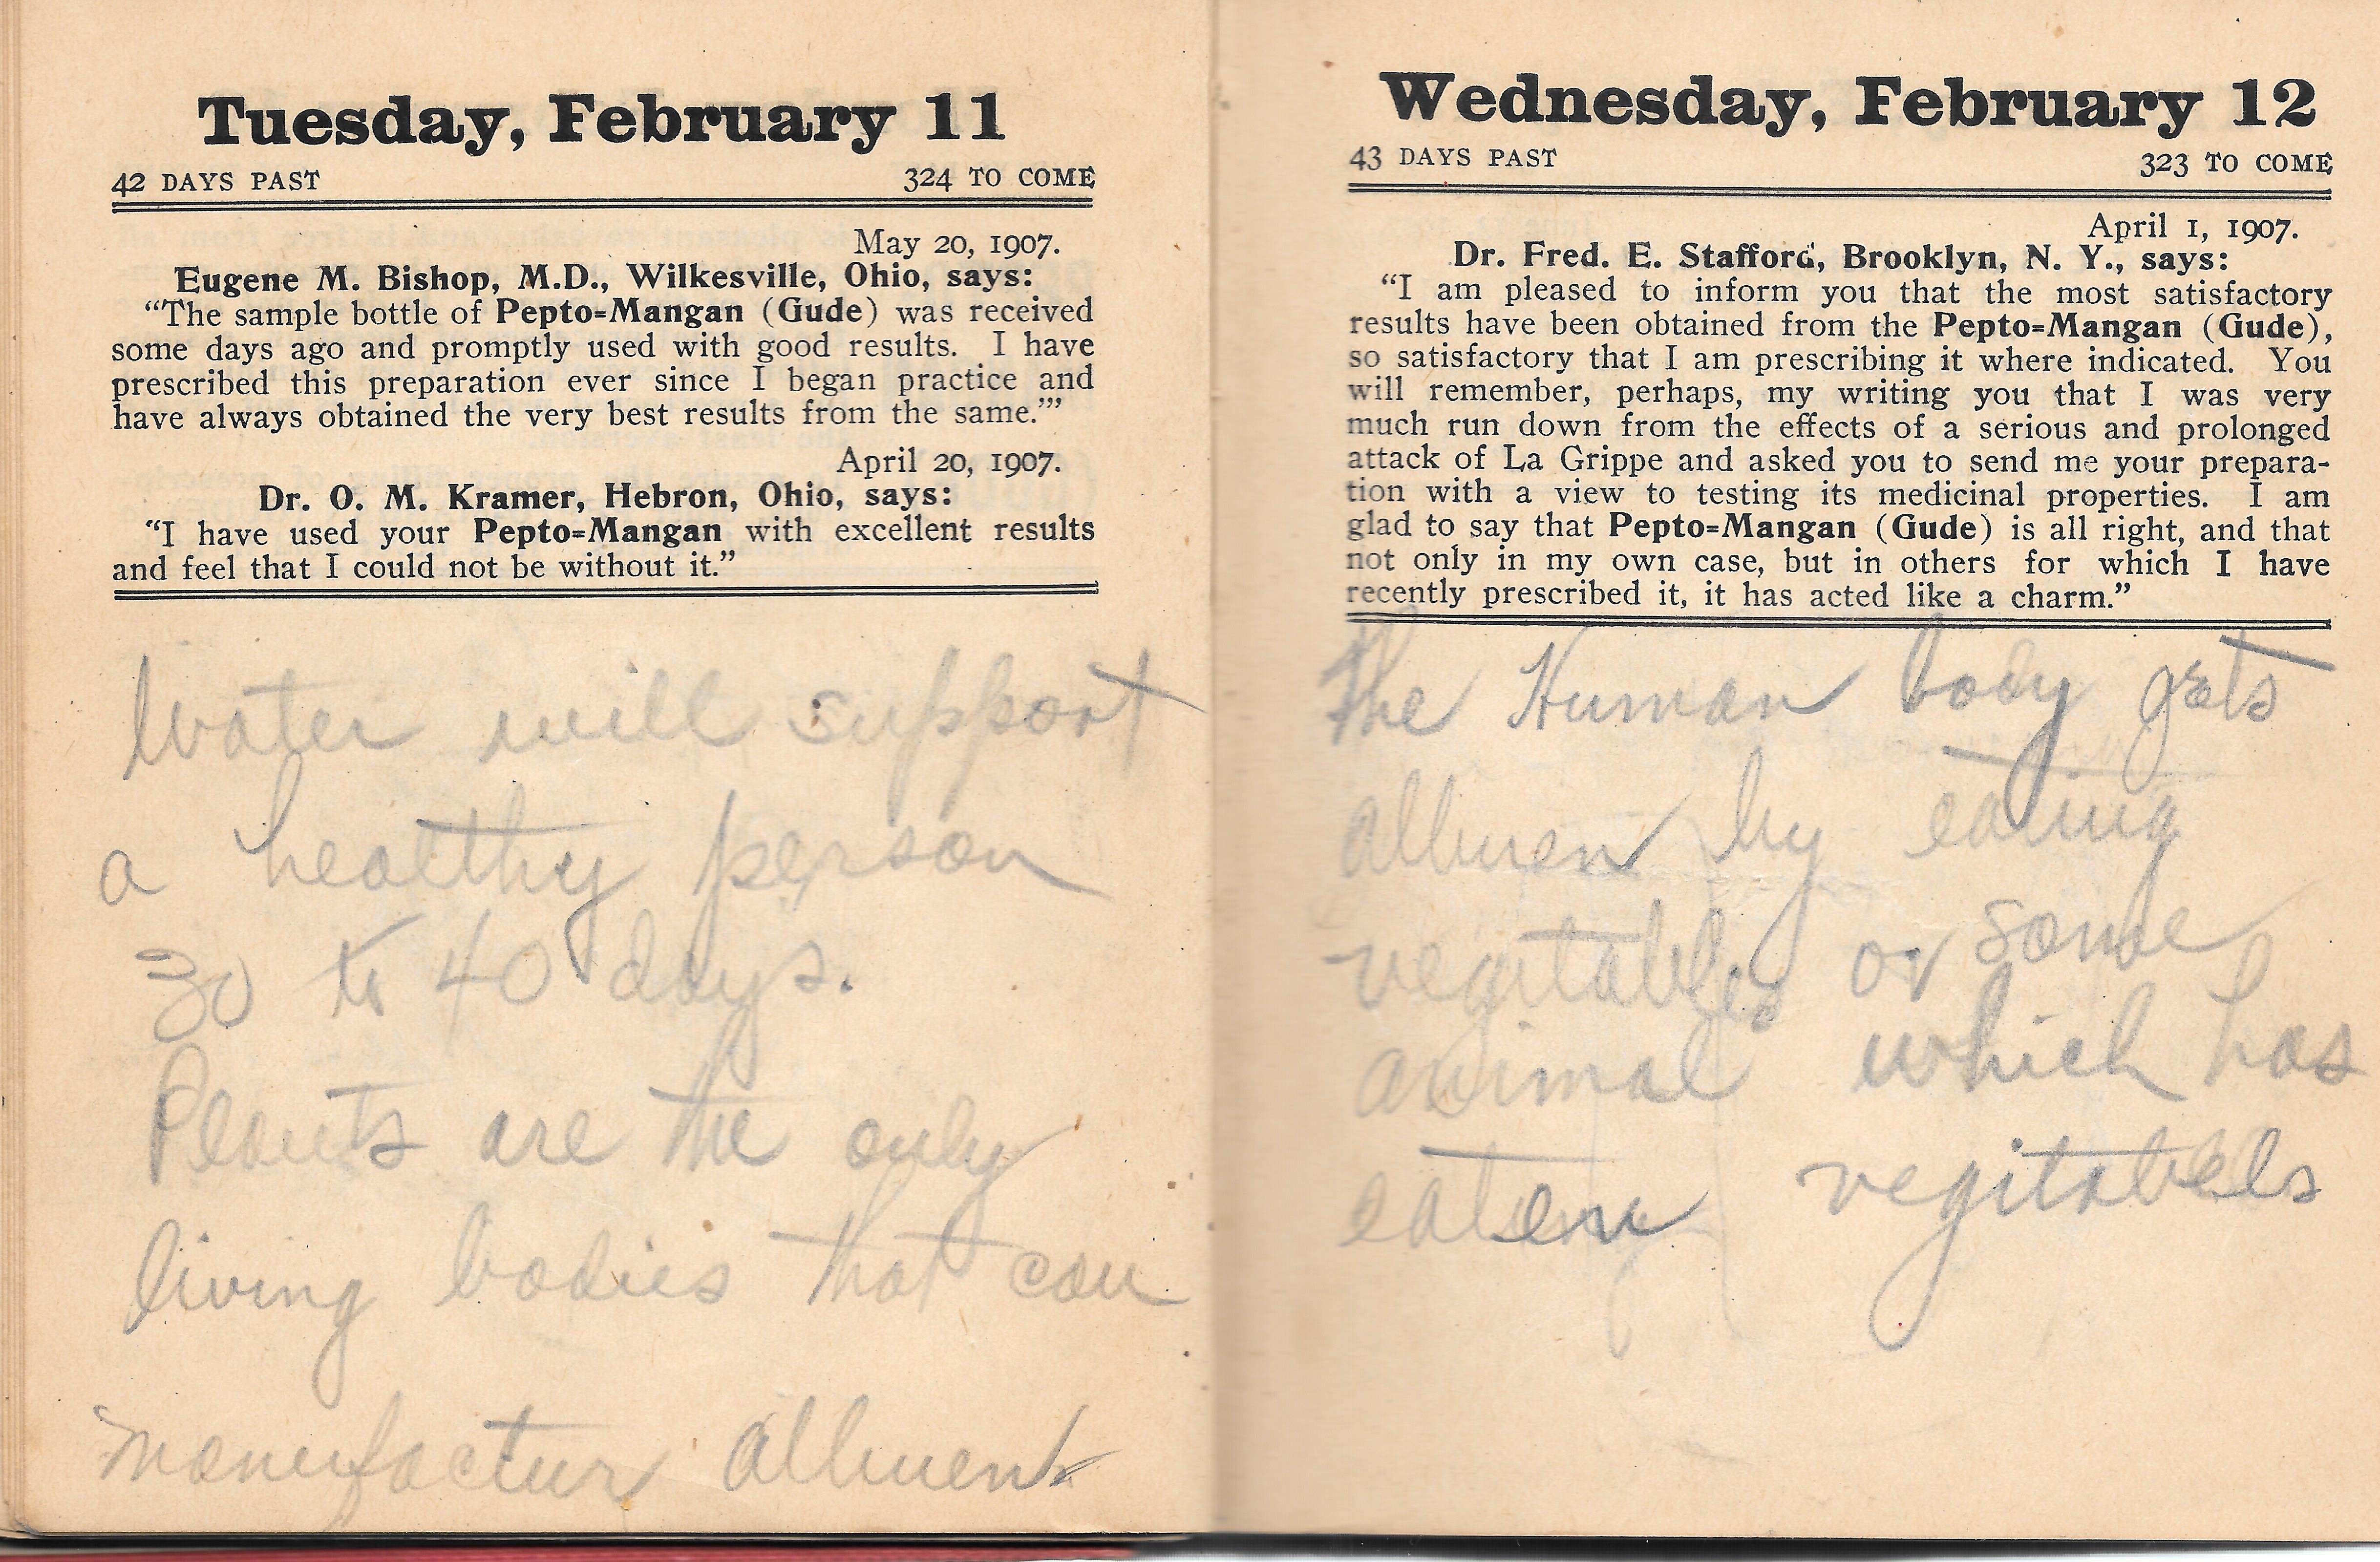 Tuesday, February 11
42 DAYS PAST 324 TO COME
May 20, 1907.
Eugene M. Bishop, M.D., Wilkesville, Ohio, says:
“The sample bottle of Pepto=Mangan (Gude) was received
some days ago and promptly used with good results. I have
prescribed this preparation ever since I began practice and
have always obtained the very best results from the same.’”
April 20, 1907.
Dr. O. M. Kramer, Hebron, Ohio, says:
“I have used your Pepto=Mangan with excellent results
and feel that I could not be without it.”
Water will support
a healthy person
30 to 40 days.
Plants are the only
living bodies that can
manufactur albumen
Wednesday, February 12
43 DAYS PAST 323 TO COME
April 1, 1907.
Dr. Fred. E. Stafford, Brooklyn, N. Y., says:
“I am pleased to inform you that the most satisfactory
results have been obtained from the Pepto=Mangan (Gude),
so satisfactory that I am prescribing it where indicated. You
will remember, perhaps, my writing you that I was very
much run down from the effects of a serious and prolonged
attack of La Grippe and asked you to send me your prepara-
tion with a view to testing its medicinal properties. I am
glad to say that Pepto=Mangan (Gude) is all right, and that
not only in my own case, but in others for which I have
recently prescribed it, it has acted like a charm.”
The Human body gets
albumen by eating
vegitables or some
animal which has
eaten vegitabels